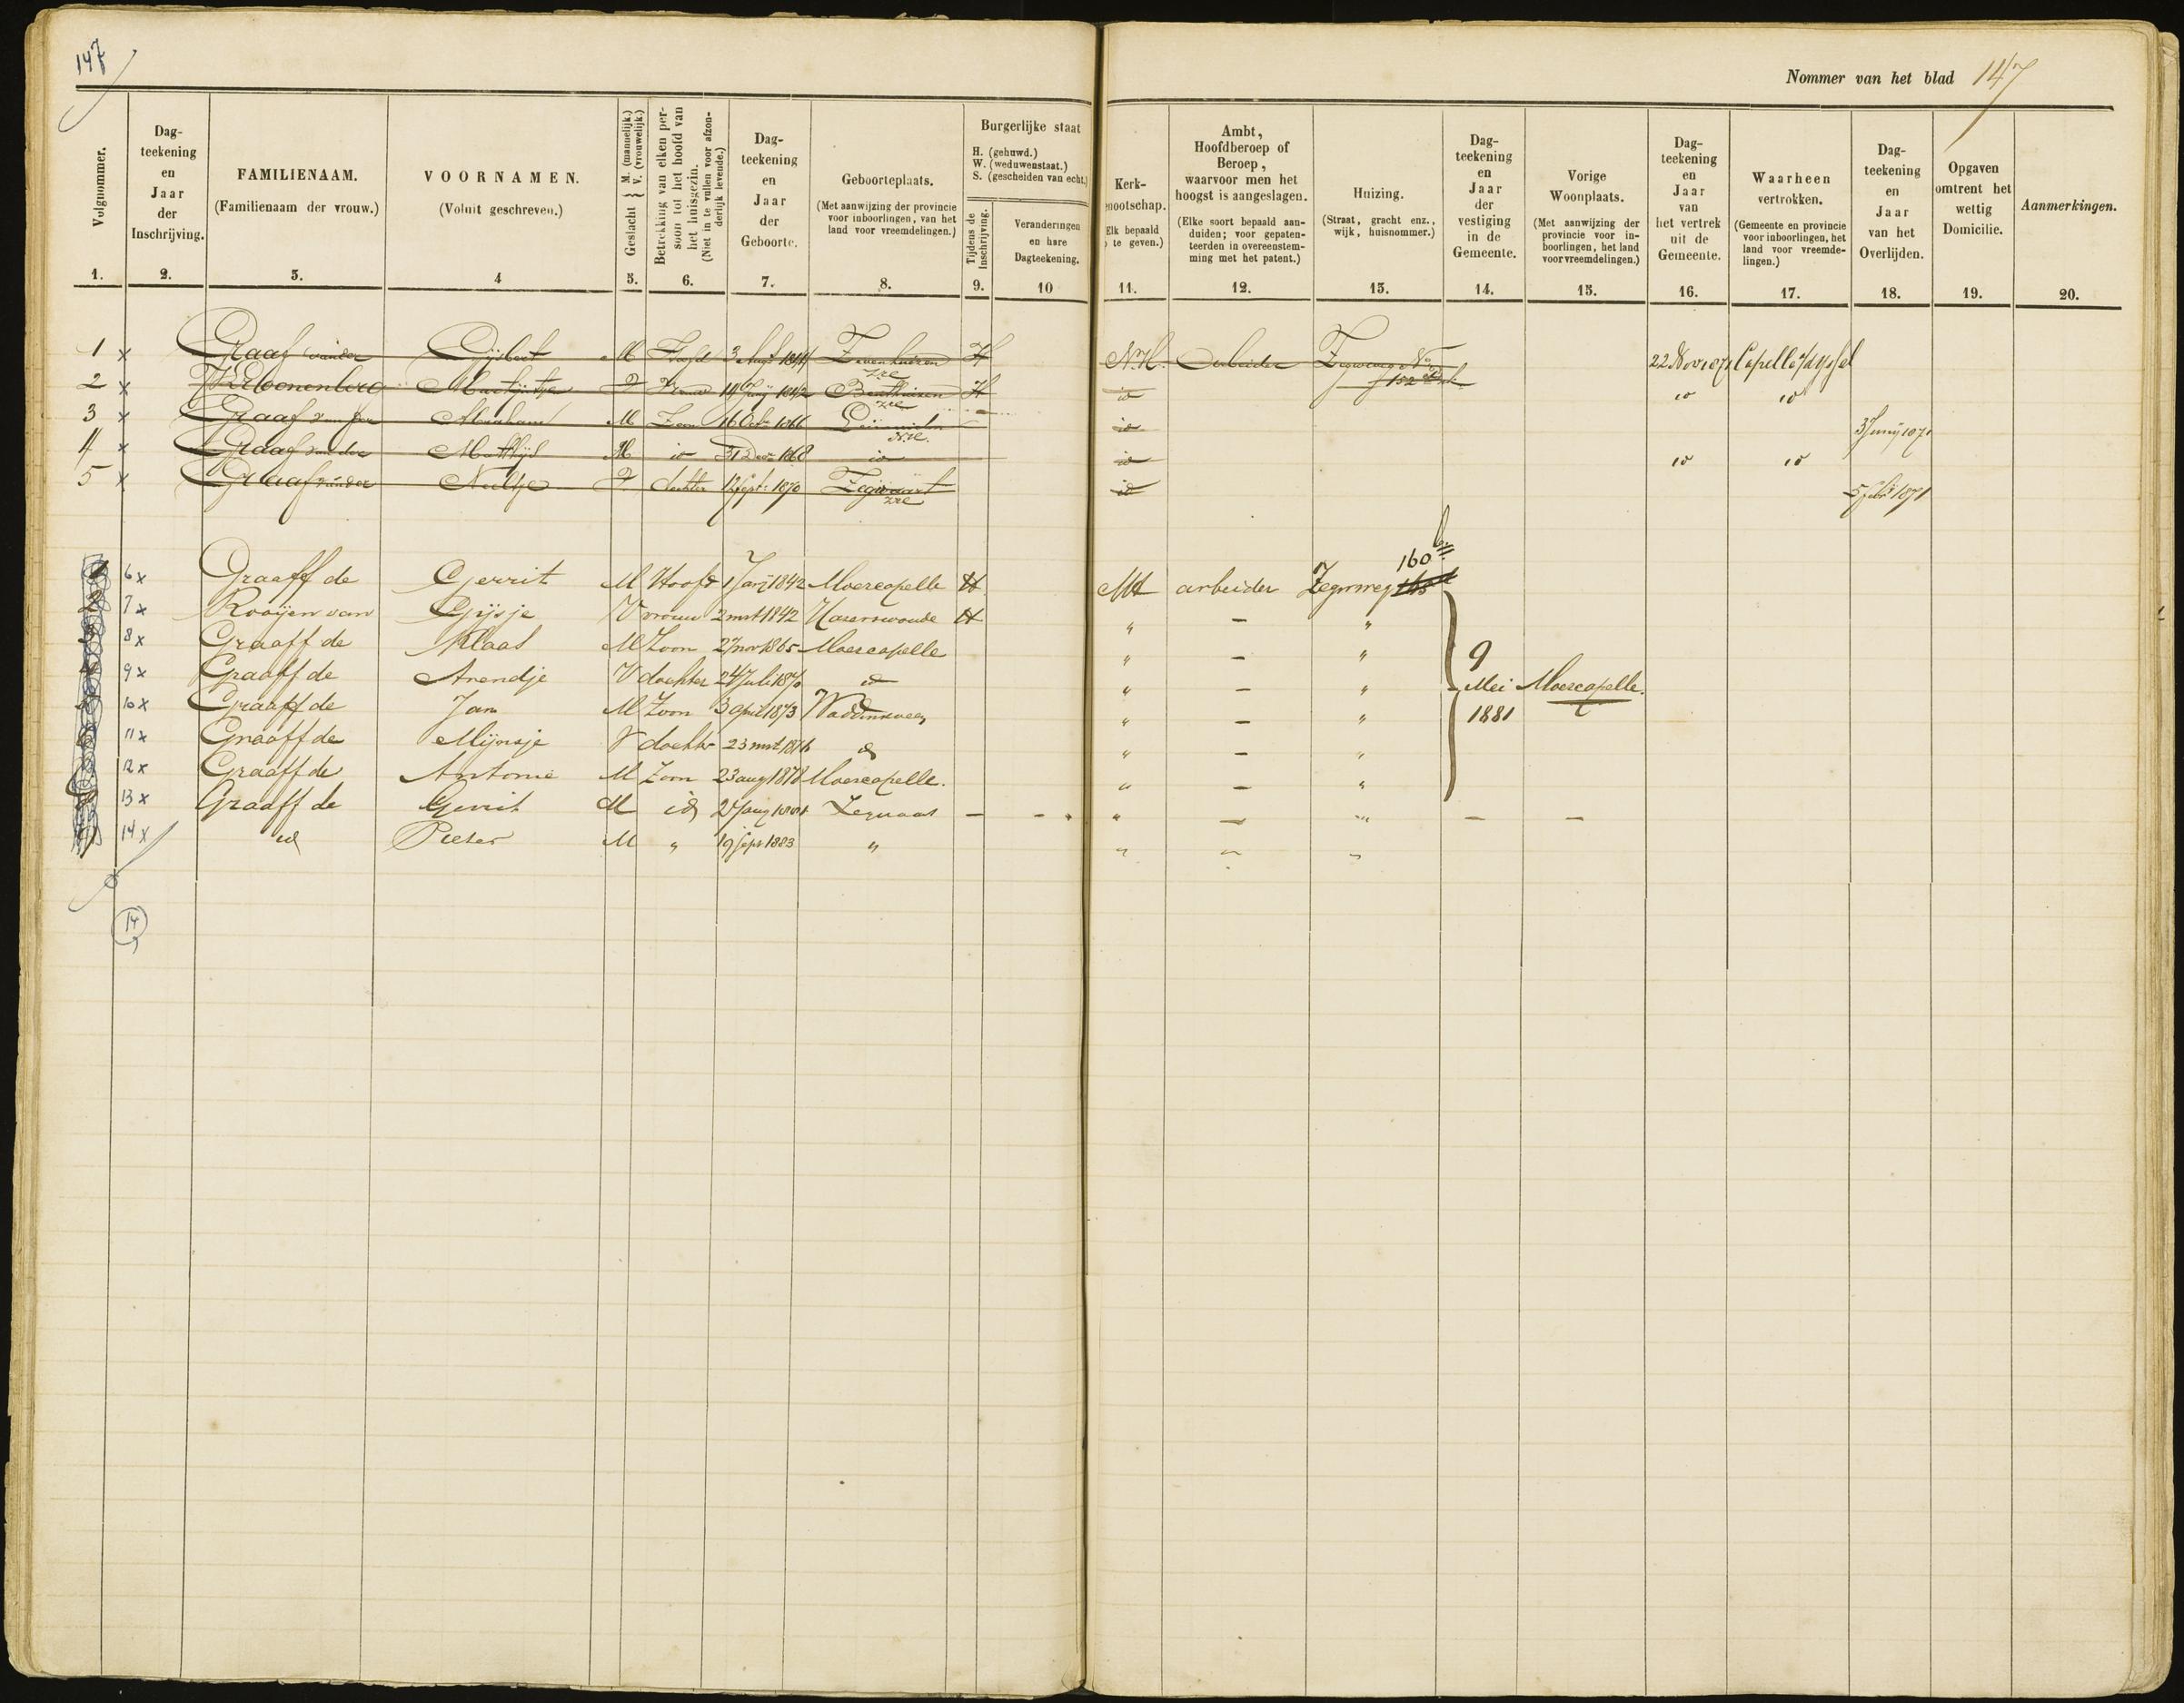 147
Nommer van het blad 147
Volgnommer.
Dag-
teekening
en
Jaar
der
Inschrijving.
FAMILIENAAM.
(Familienaam der vrouw.)
VOORNAMEN.
(Voluit geschreven.)
Geslacht } M. (mannelijk.) V. (vrouwelijk.)
Betrekking van elken per-
soon tot het hoofd van
het huisgezin.
(Niet in te vullen voor afzon-
derlijk levende.)
Dag-
teekening
en
Jaar
der
Geboorte.
Geboorteplaats.
(Met aanwijzing der provincie
voor inboorlingen, van het
land voor vreemdelingen.)
Burgerlijke staat
H. (gehuwd.)
W. (weduwenstaat.)
S. (gescheiden van echt.)
Tijdens de
Inschrijving.
Veranderingen
en hare
Dagteekening.
Kerk-
nootschap.
Elk bepaald
te geven.)
Ambt,
Hoofdberoep of
Beroep,
waarvoor men het
hoogst is aangeslagen.
(Elke soort bepaald aan-
duiden; voor gepaten-
teerden in overeenstem-
ming met het patent.)
Huizing.
(Straat, gracht enz.,
wijk, huisnommer.)
Dag-
teekening
en
Jaar
der
vestiging
in de
Gemeente.
Vorige
Woonplaats.
(Met aanwijzing der
provincie voor in-
boorlingen, het land
voor vreemdelingen.)
Dag-
teekening
en
Jaar
van
het vertrek
uit de
Gemeente.
Waarheen
vertrokken.
(Gemeente en provincie
voor inboorlingen, het
land voor vreemde-
lingen.)
Dag-
teekening
en
Jaar
van het
Overlijden.
Opgaven
omtrent het
wettig
Domicilie.
Aanmerkingen.
1. 2. 3. 4 5. 6. 7. 8. 9. 10 11. 12. 13. 14. 15. 16. 17. 18. 19. 20.
1 x Graaf van der Gijsbert M Hoofd 3 Aug 1844 Zevenhuizen H N.H. Arbeider Zegweg No 152 22 Nov 1871 Capelle a/d Yssel
2 x Martijntje V Vrouw 1842 Benthuizen H id id id
zhe
3 x Graaf van der Abraham M Zoon 16 Octr 1866 id 3 Junij 1871
4 x Graaf van der Matthijs M id 31 Decr 1868 id id id id
5 x Graaf van der Neeltje V dochter 12 Sept 1870 Zegwaart id 5 Febr 1871
zhe
160 b
6 x Graaff de Gerrit M Hoofd 1 Jan 1842 Moercapelle H NH arbeider Zegweg
7 x Rooijen van Gijsje V vrouw 2 mrt 1842 Hazerswoude H " - "
8 x Graaff de Klaas M Zoon 27 nov 1865 Moercapelle " - " 9
9 x Graaff de Arendje V dochter 24 Juli 1870 id " - " Mei Moercapelle.
10 x Graaff de Jan M Zoon 3 april 1873 Waddinxveen " - " 1881
11 x Graaff de Mijnsje V dochter 23 mrt 1876 id " - "
12 x Graaff de Antonie M Zoon 23 aug 1878 Moercapelle. " - "
13 x Graaff de Gerrit M id Zegwaart - - " - " - -
14 x id Pieter M " 19 Sept 1883 " " " "
14